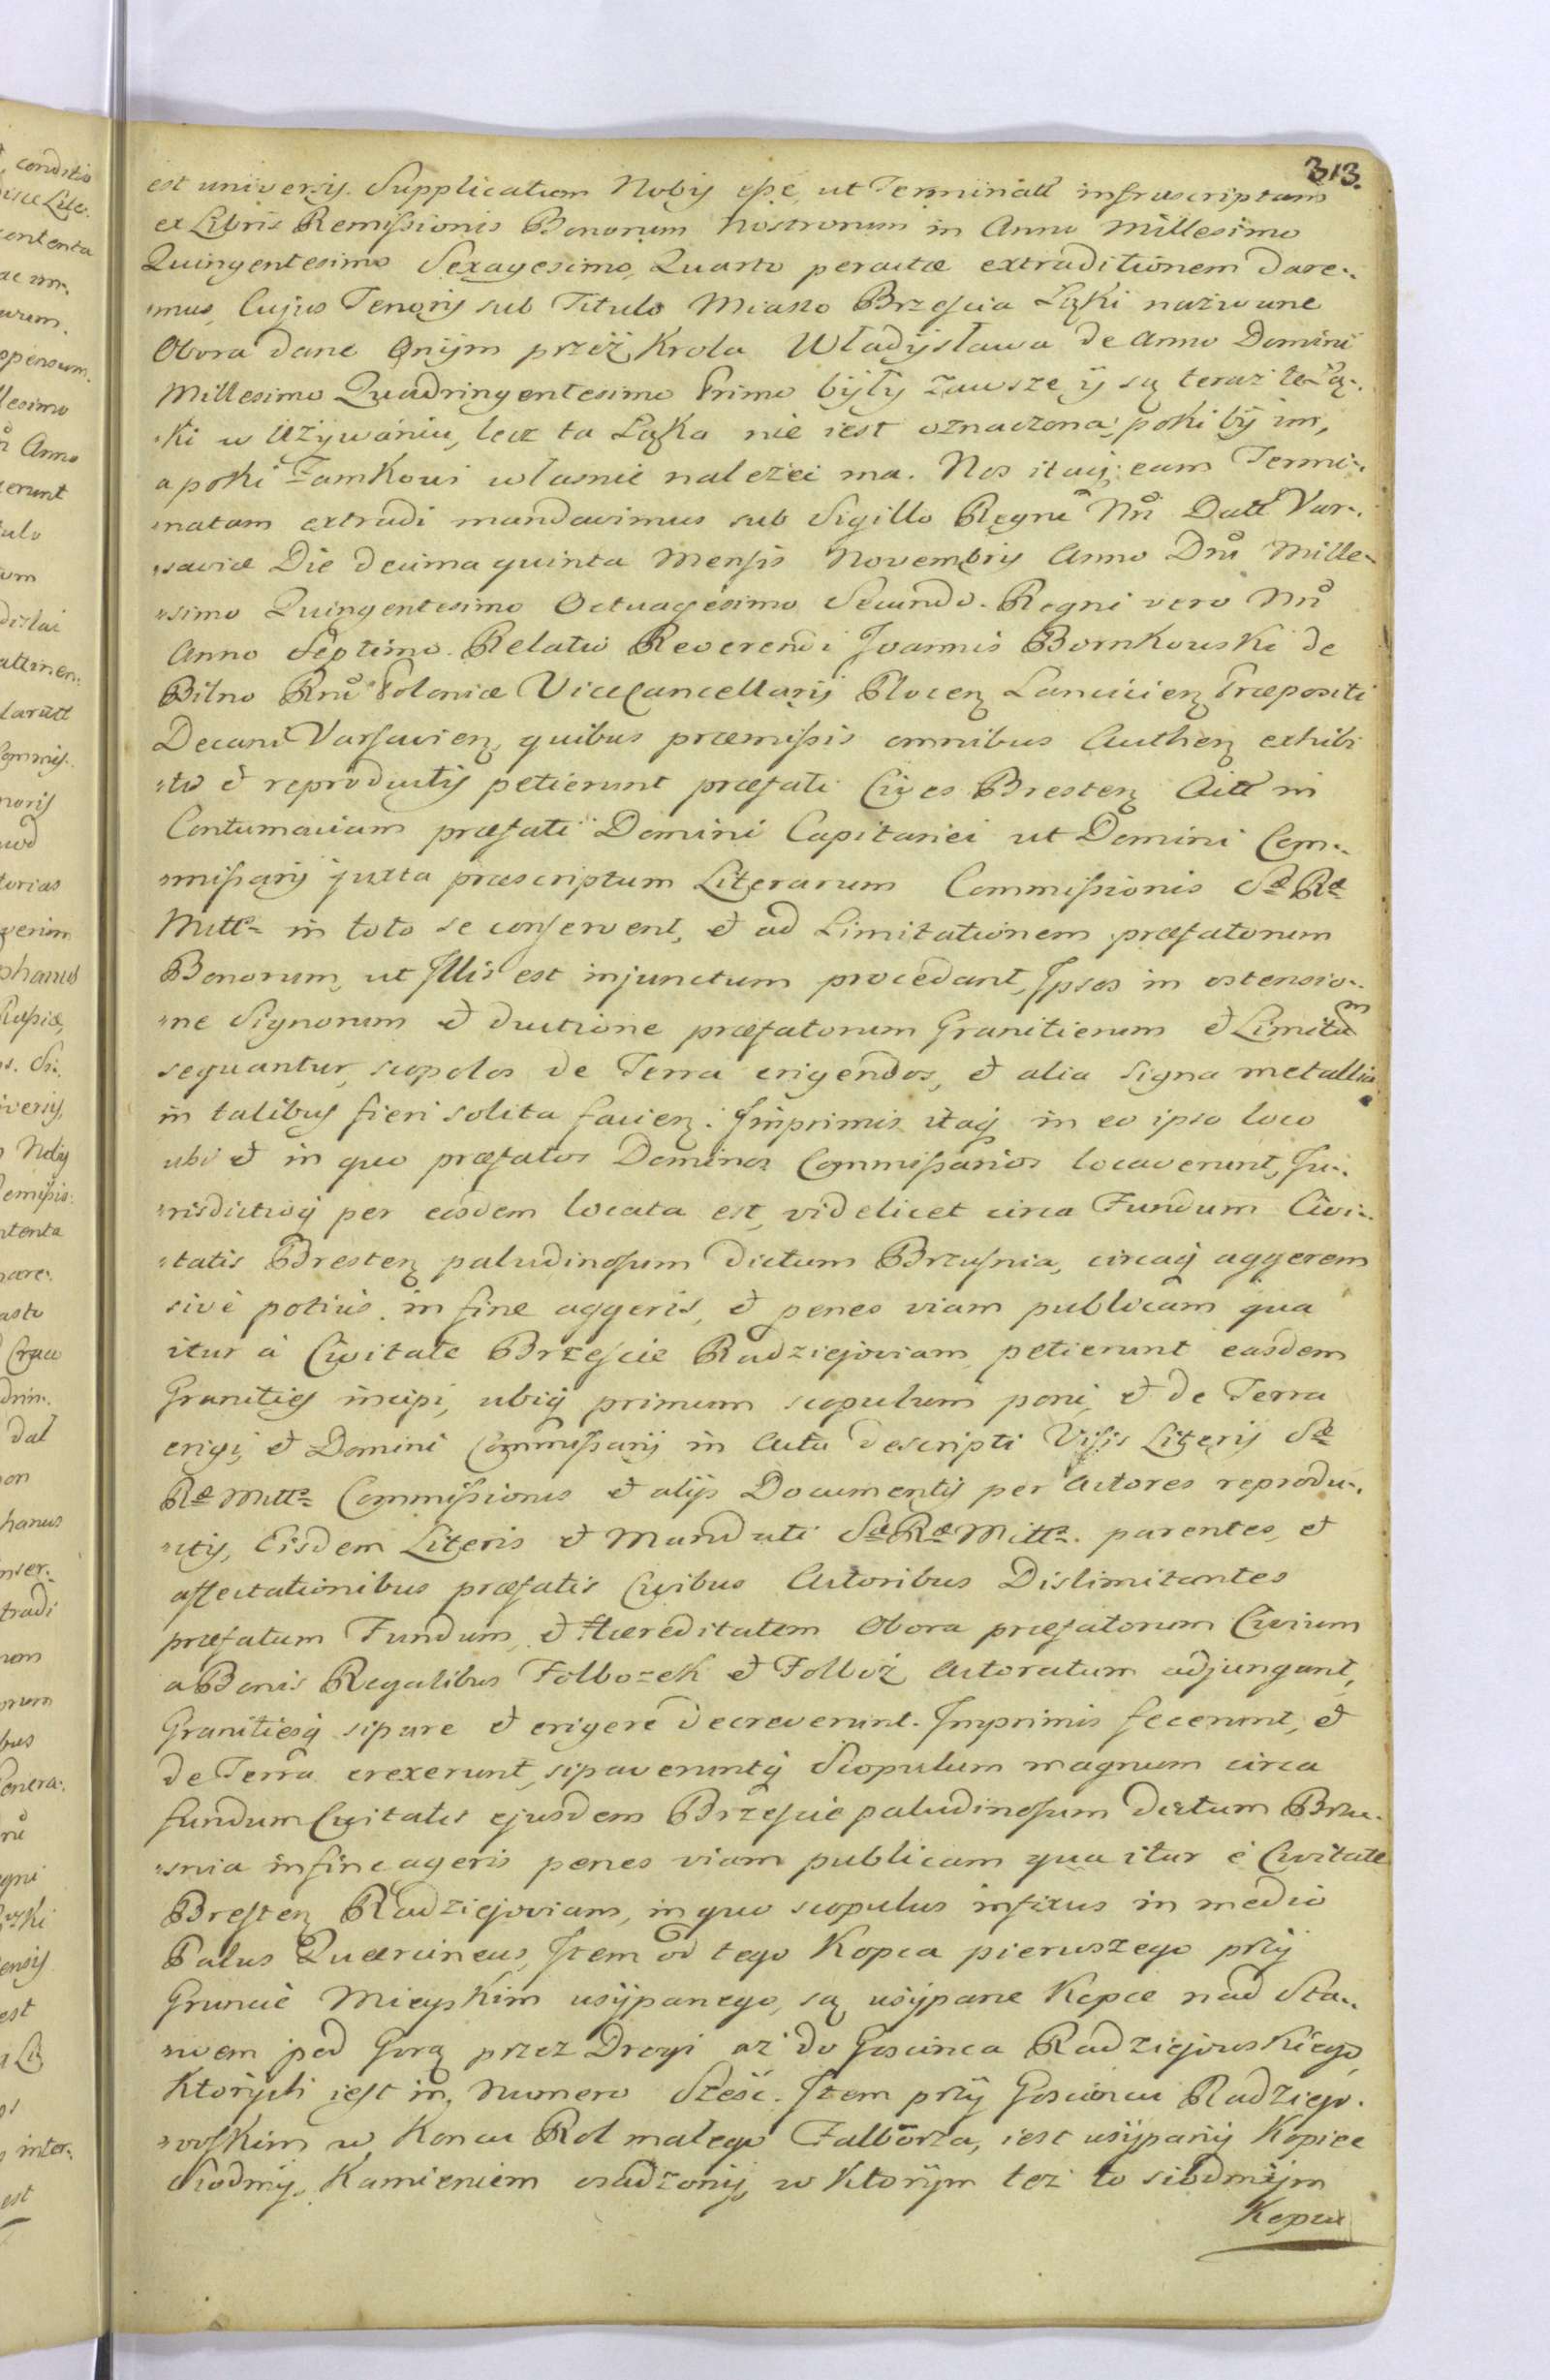 313.
est universis. Supplicatum Nobis esse, ut Terminatt infrascriptam
ex Libris Remissionis Bonorum Nostrorum in Anno Millesimo
Quingentesimo Sexagesimo Quarto peractæ extraditionem dare-
mus, Cujus Tenoris sub Titulo Miasto Brzescia Łąki nazwane
Obora dane Onijm przeż Krola Władysława de Anno Domini
Millesimo Quadringentesimo Primo były zawsze ij są teraz te Łą-
ki w Używaniu, lecz ta Łąka nie iest oznaczona, poki by im,
a poki Zamkowi własnie należei ma. Nos itaq eam Termi-
natam extradi mandavimus sub Sigillo Regni Nri Datt Var-
saviæ Die decima quinta Mensis Novembris Anno Dni Mille-
simo Quingentesimo Octuagesimo Secundo. Regni vero Nri
Anno Septimo. Relatio Reverendi Joannis Bornkowski de
Bilno Rni Poloniæ ViceCancellarij Plocen Lancicien Præpositi
Decani Varsavien, quibus præmissis omnibus Authen exhibi
tis et reproductis petierunt præfati Cives Bresten Actt in
Contumaciam præfati Domini Capitanei ut Domini Com-
missarij juxta præscriptum Literarum Commissionis Sæ Ræ
Mttis in toto se conservent, et ad Limitationem præfatorum
Bonorum, ut Illis est injunctum procedant, Ipsos in ostensio-
ne Signorum et ductione præfatorum Granitierum et Limitum
sequantur, scopolos de Terra erigendos, et alia Signa metallia
in talibus fieri solita facien. Imprimis itaq in eo ipso loco
ubi et in quo præfatos Dominos Commissarios locaverunt, Ju-
risdictioq per eosdem locata est, videlicet circa Fundum Civi-
tatis Bresten paludinosum dictum Brzusnia, circaq aggerem
sive potius in fine aggeris, et penes viam publicam qua
itur à Civitate Brzescie Radziejoviam petierunt easdem
Granities incipi, ubiq primum scopulum poni, et de Terra
erigi, et Domini Commissarij in Actu descripti Visis Literis Sæ
Ræ Mttis Commissionis et alijs Documentis per Actores reprodu-
ctis, Eisdem Literis et Mandati Sæ Ræ Mttis. parentes, et
affectationibus præfatis Civibus Actoribus Dislimitantes
præfatum Fundum, et Hæreditatem Obora præfatorum Civium
a Bonis Regalibus Folbozek et Folboż Actoratum adjungant,
Granitiesq sipare et erigere decreverunt. Imprimis fecerunt, et
de Terra erexerunt, sipaveruntq Scopulum magnum circa
fundum Civitatis ejusdem Brzescie paludinosum dictum Brzu-
snia in fine ageris penes viam publicam qua itur è Civitate
Bresten Radziejoviam, in quo scopulus infixus in medio
Palus Quercineus, Item od tego Kopca pierwszego przij
Gruncie Mieyskim usijpanego, są usijpane Kopce nad Sta-
wem pod Gorą przez Drogi aż do Goscinca Radziejowskiego,
Ktorijch iest in Numero Sześć. Item przij Goscincu Radziejo-
wskim w Koncu Rol małego Falborza, iest usijpanij Kopiec
siodmij, Kamieniem osadzonij, w Ktorijm też to siodmijm
Kopcu